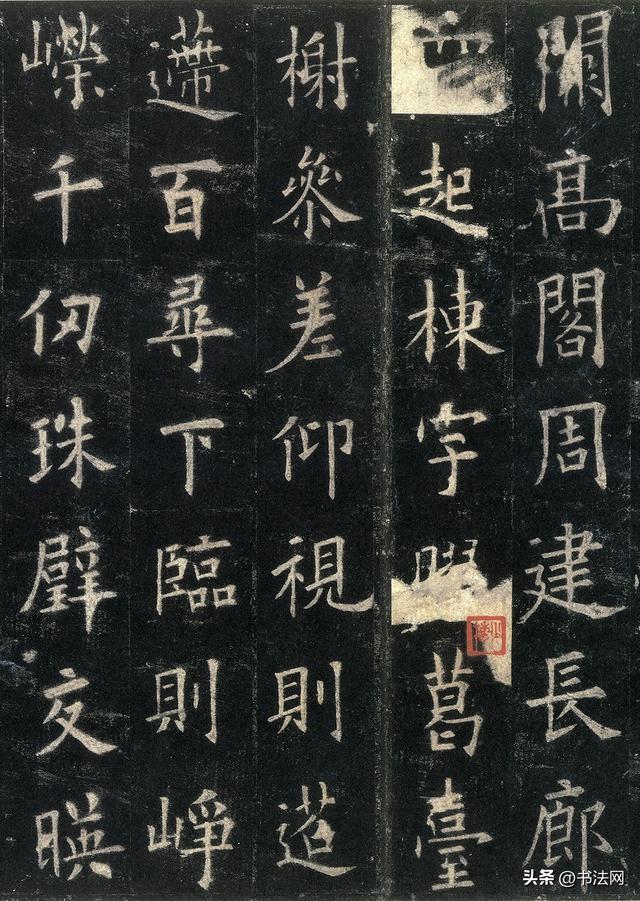 闕髙閣周建長廊
四起棟宇葛臺
榭參差仰視則迢
遰百尋下臨則崢
嶸千仞珠壁交暎
头条 @书法网